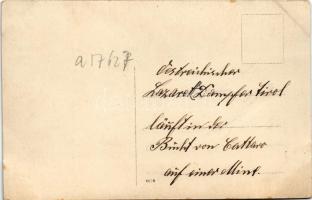 a 17627.
östreichischer
Lazaret Dampfer Tirol
läuft in der
Bucht von Cattaro
auf einer Mine.